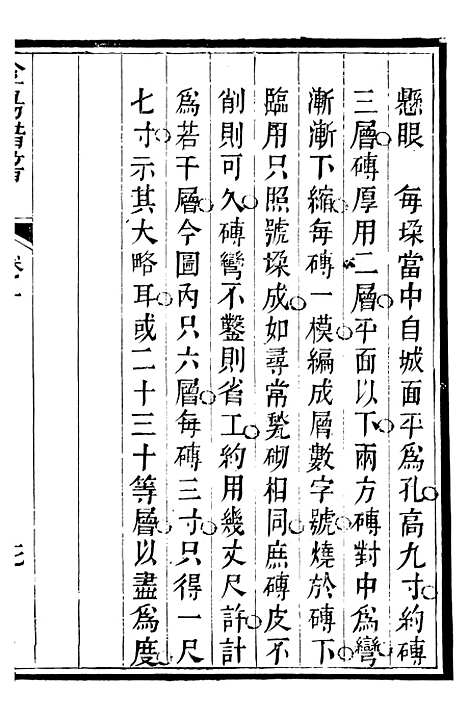 懸眼　每垜當中自城面平爲孔高九寸約磚
三層磚厚用二層平面以下兩方磚對中爲彎
漸漸下縮每磚一模編成層數字號燒於磚下
臨用只照號垜成如尋常甃砌相同庶磚皮不
削則可久磚彎不鑿則省工約用幾丈尺許計
爲若干層今圖內只六層每磚三寸只得一尺
七寸示其大略耳或二十三十等層以盡爲度